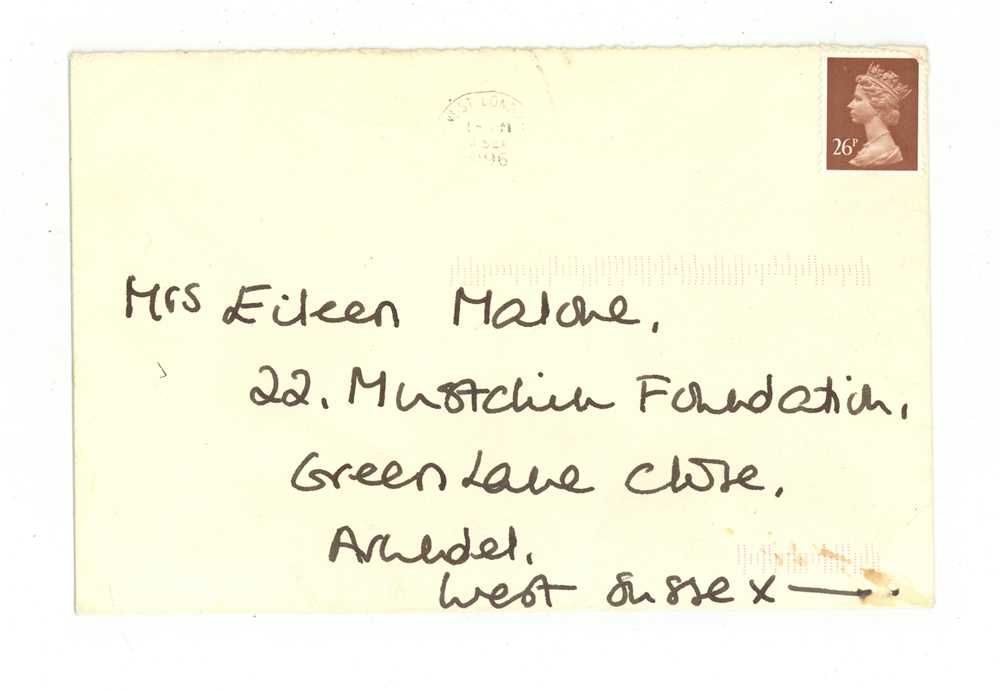 WEST LOND
26P
Mrs Eileen Malone,
22. Mustchin Foundation,
Green Lane Close,
Arundel,
West Sussex